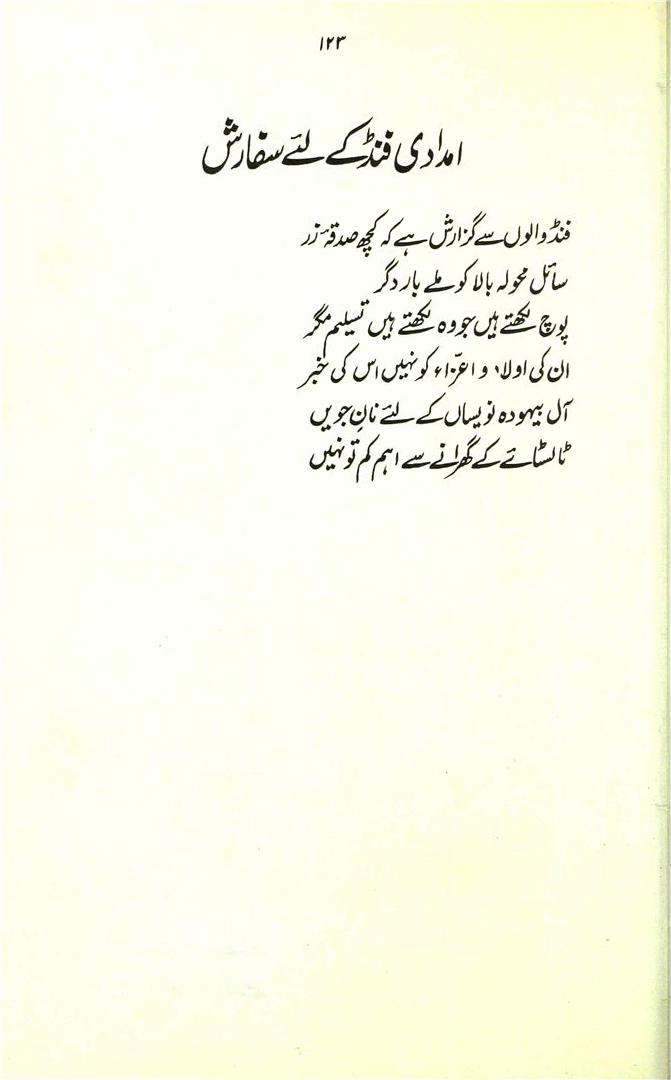 ۱۲۳
امدادی فنڈ کے لئے سفارش
فنڈ والوں سے گزارش ہے کہ کچھ صدقۂ زر
سائل محولہ بالا کو ملے بار دگر
پوچ لکھتے ہیں جو وہ لکھتے ہیں تسلیم مگر
ان کی اولاد و اعزّاء کو نہیں اس کی خبر
آل بیہودہ نویساں کے لئے نانِ جویں
ٹالسٹائے کے گھرانے سے اہم کم تو نہیں